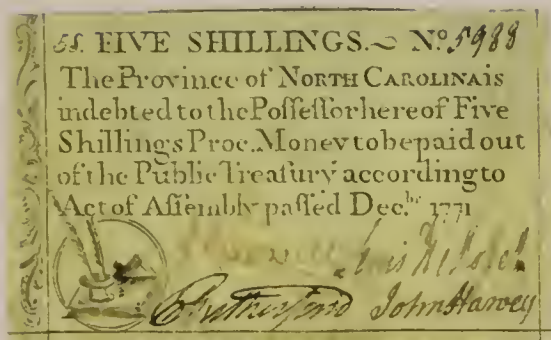 5s. FIVE SHILLINGS.~ No. 5988
The Province of NORTH CAROLINA is
indebted to the Poſſeſſor hereof Five
Shillings Proc. Money to be paid out
of the Public Treaſury according to
Act of Aſſembly paſſed Decbr. 1771
Lewis De Roſet
Rutherfurd John Harvey